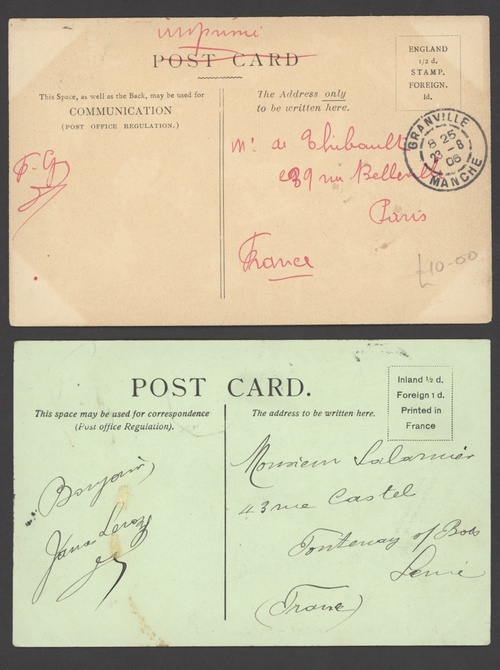 imprimé
POST CARD
ENGLAND
1/2 d.
STAMP.
FOREIGN.
1d.
This Space, as well as the Back, may be used for
COMMUNICATION
(POST OFFICE REGULATION.)
The Address only
to be written here.
GRANVILLE
8 25
23 - 8
06
MANCHE
Mr. de Thibault
rue
Paris
France
£10-00
POST CARD.
Inland ½ d.
Foreign 1 d.
Printed in
France
This space may be used for correspondence
(Post office Regulation).
The address to be written here.
Bonjour
Monsieur
43 rue Castel
Fontenay
(France)